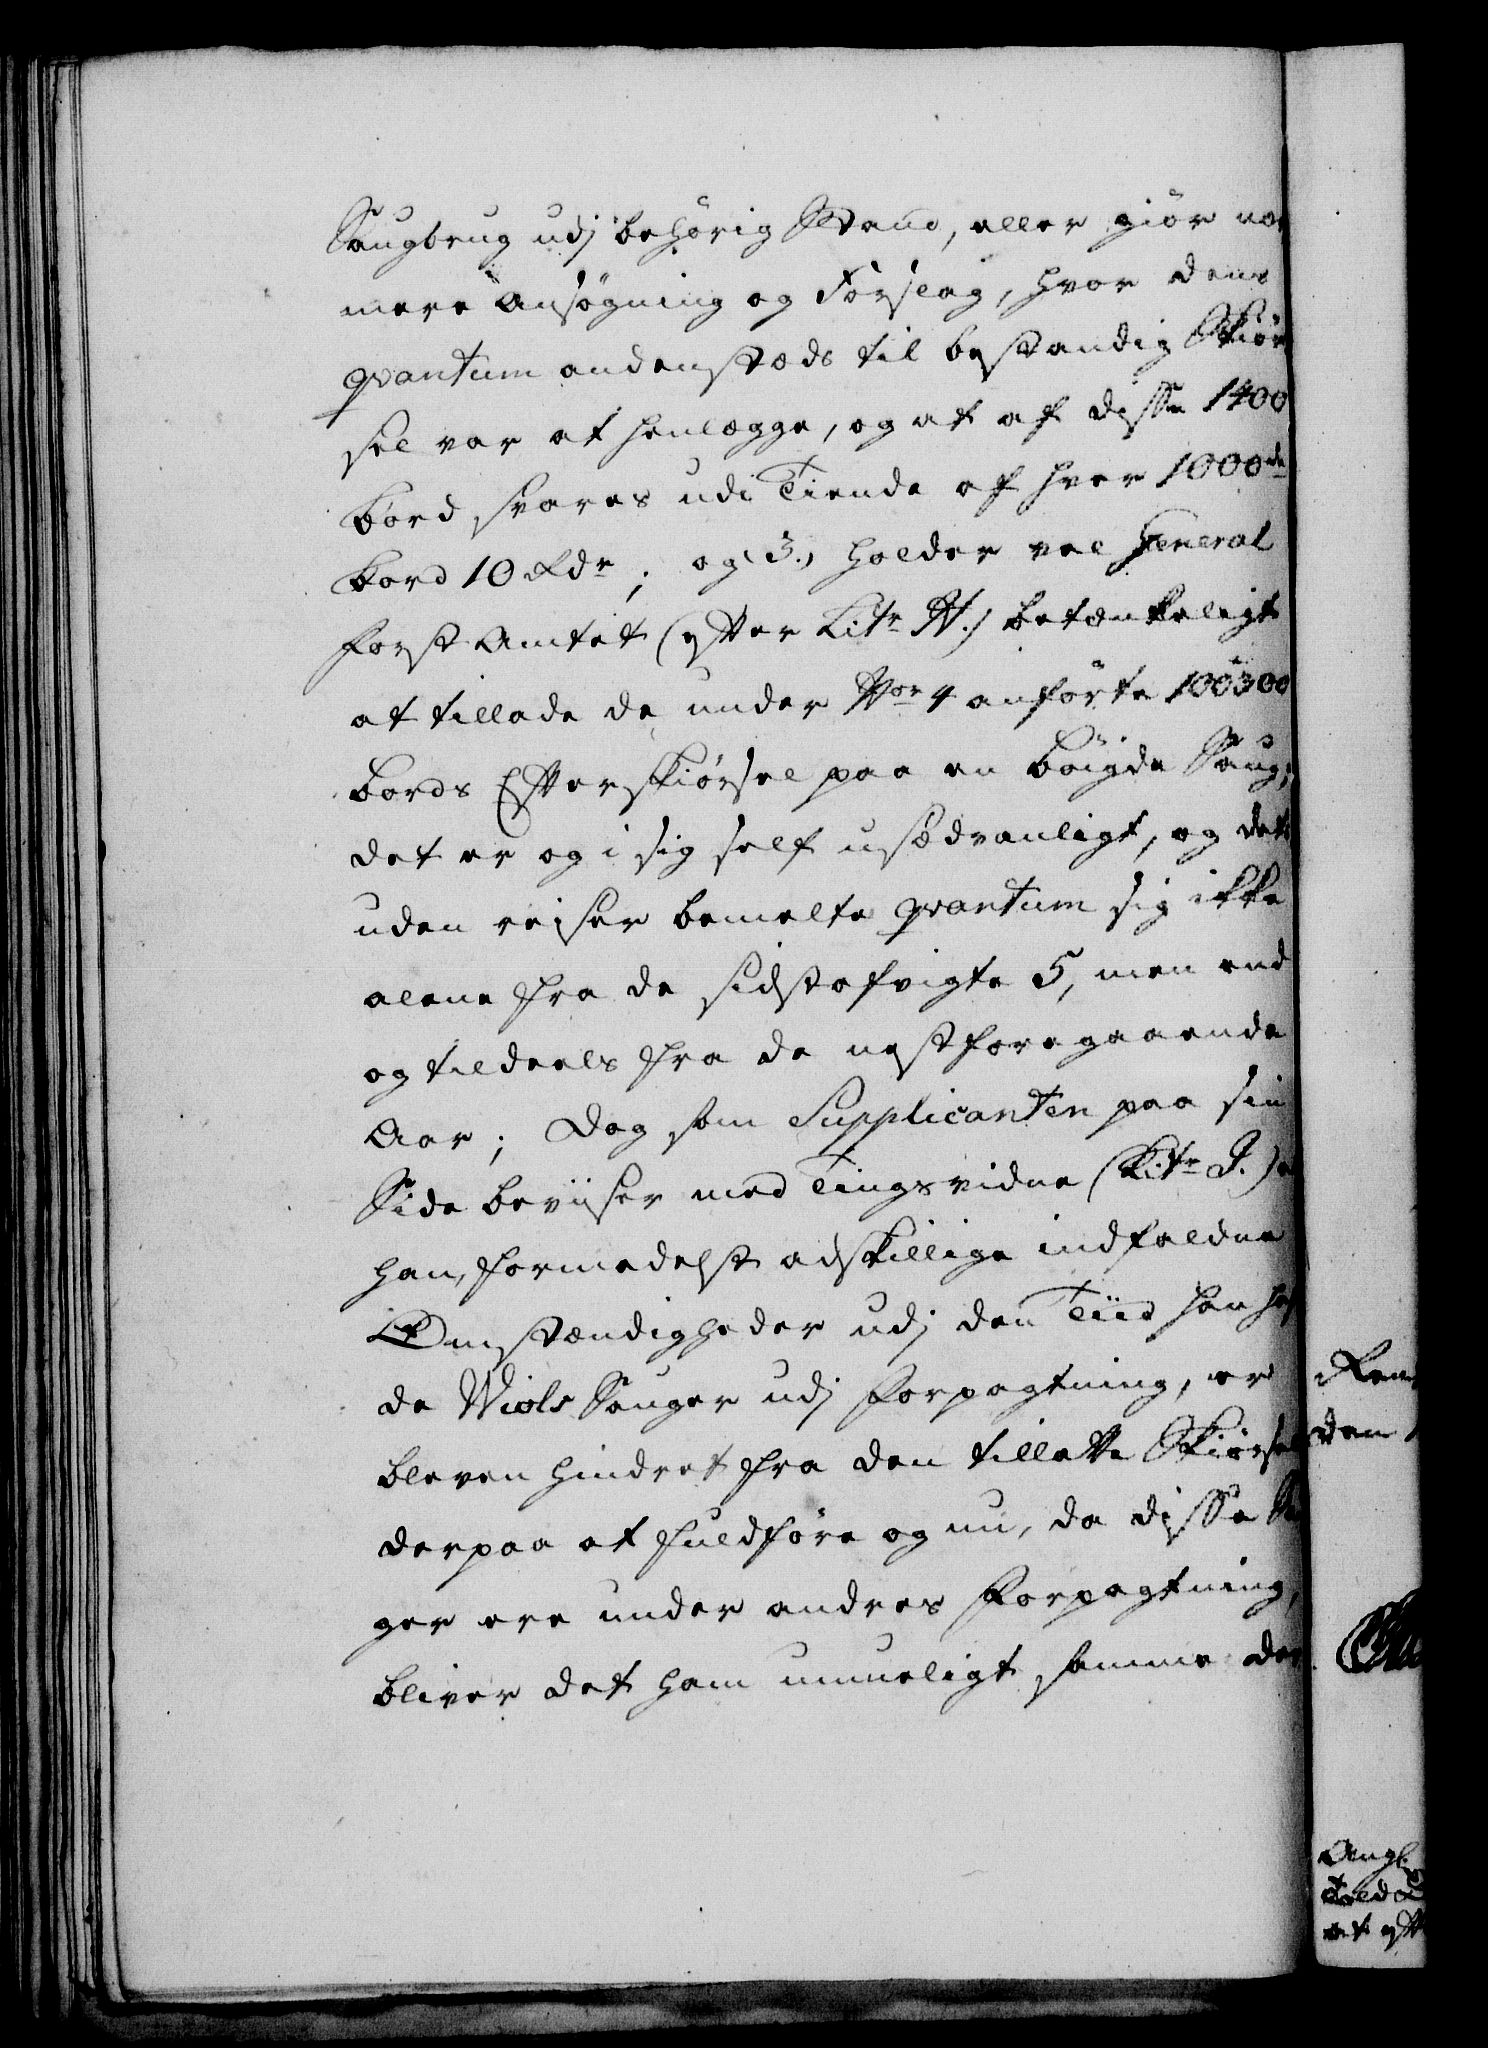 Saugbrug udj behörig Stand, eller giör
mere Ansögning og Forslag, hvor dens
qvantum andenstæds til bestandig Skiör
sel var at henlægge, og at af disse 1400
bord svares udi Tiende af hver 1000de
bord 10 Rdr; og 3.) holder vel General
Forst Amtet (efter Litr N.) betænkeligt
at tillade de under Nor 4 anförte 100300
bords Efterskiörsel paa en böigde Saug;
det er og i sig self usædvanligt, og det
uden reiser bemelte qvantum sig ikke
alene fra de sidstafvigte 5, men end
og tildeels fra de nestforegaaende
Aar; Dog som Supplicanten paa sin
Side beviiser med Tingsvidne (Litr J.)
han, formedelst adskillige indfaldne
Omstændigheder udj den Tiid han haf
de Wiols Sauger udj Forpagtning, er
bleven hindret fra den tilladte Skiörsel
derpaa at fuldföre og nu, da disse Sau
ger ere under andres Forpagtning,
bliver det ham umueligt samme der